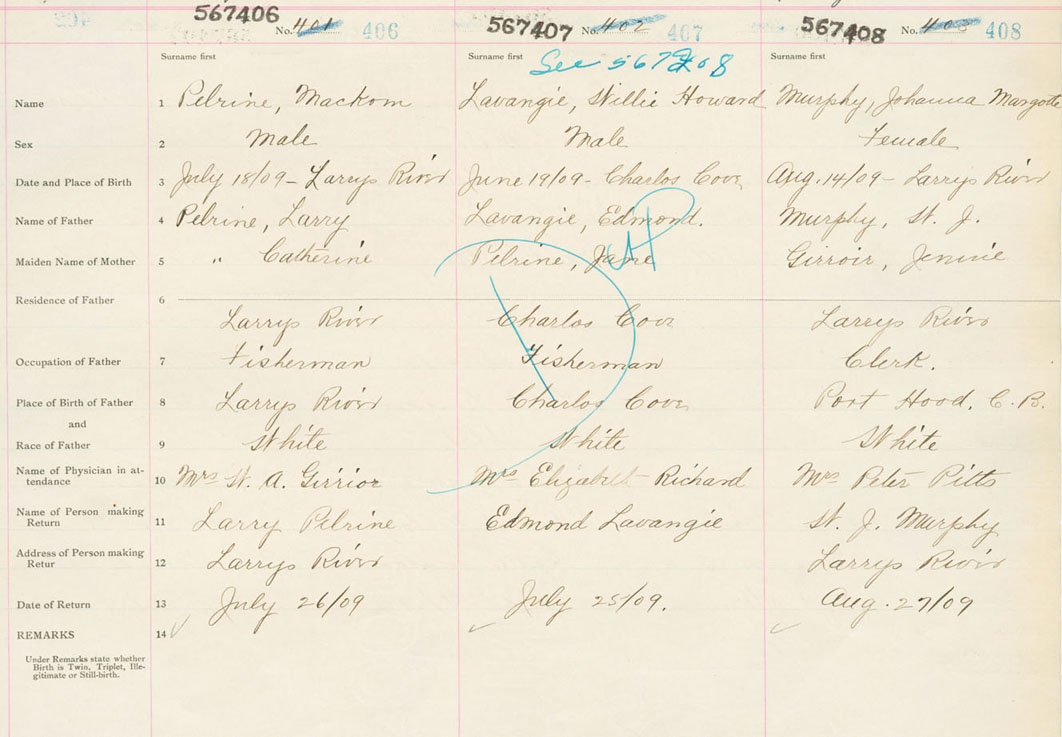 567406 No. 401 406 567407 No. 402 407 567408 No. 408
Surname first Surname first Surname first
See 567208
Name 1 Pelrine, Mackom Lavangie, Willie Howard Murphy, Johanna
Sex 2 Male Male Female
Date and Place of Birth 3 July 18/09 - Larrys River June 19/09 - Charlos Cove Aug. 14/09 - Larrys River
Name of Father 4 Pelrine, Larry Lavangie, Edmond. Murphy, W. J.
Maiden Name of Mother 5 " Catherine Pelrine, Jane Girroir, Jennie
Residence of Father 6
Larrys River Charlos Cove Larrys River
Occupation of Father 7 Fisherman Fisherman Clerk.
Place of Birth of Father 8 Larrys River Charlos Cove Port Hood, C. B.
and
Race of Father 9 White White White
Name of Physician in at-
tendance 10 Mrs W. A. Girrior Mrs Elizabeth Richard Mrs Peter Pitts
Name of Person making
Return 11 Larry Pelrine Edmond Lavangie W. J. Murphy
Address of Person making
Retur 12 Larrys River Larrys River
Date of Return 13 July 26/09 July 25/09. Aug. 27/09
REMARKS 14
Under Remarks state whether
Birth is Twin, Triplet, Ille-
gitimate or Still-birth.